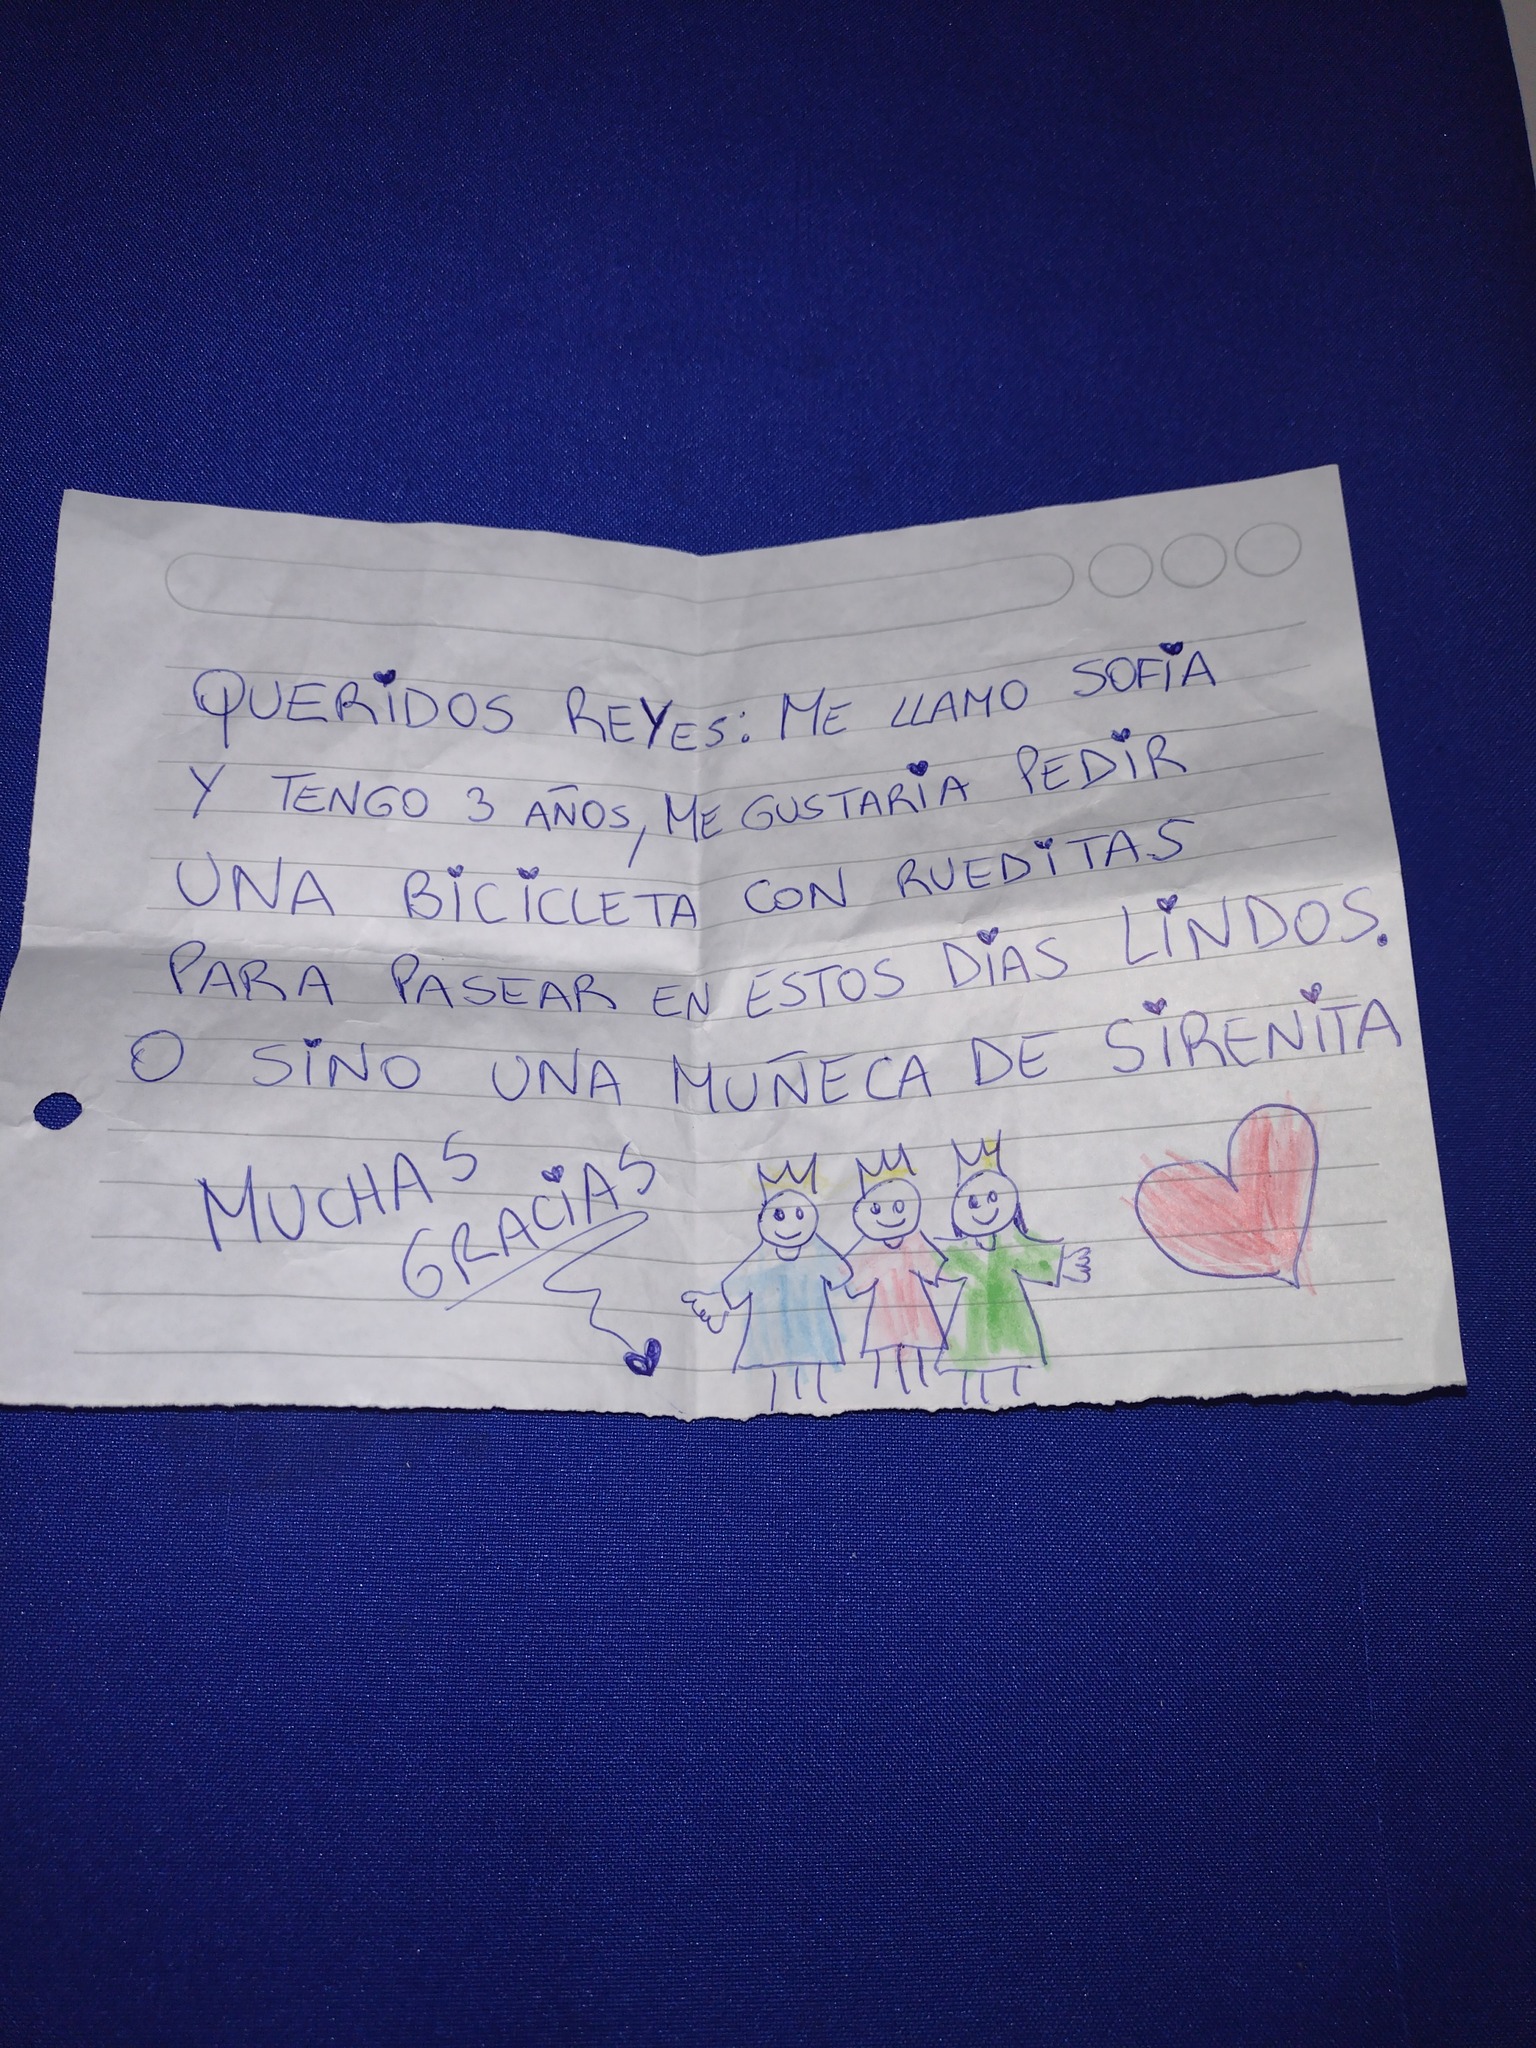 QUERIDOS REYES: ME LLAMO SOFIA
Y TENGO 3 AÑOS, ME GUSTARIA PEDIR
UNA BICICLETA CON RUEDITAS
PARA PASEAR EN ESTOS DIAS LINDOS.
O SINO UNA MUÑECA DE SIRENITA
MUCHAS
GRACIAS